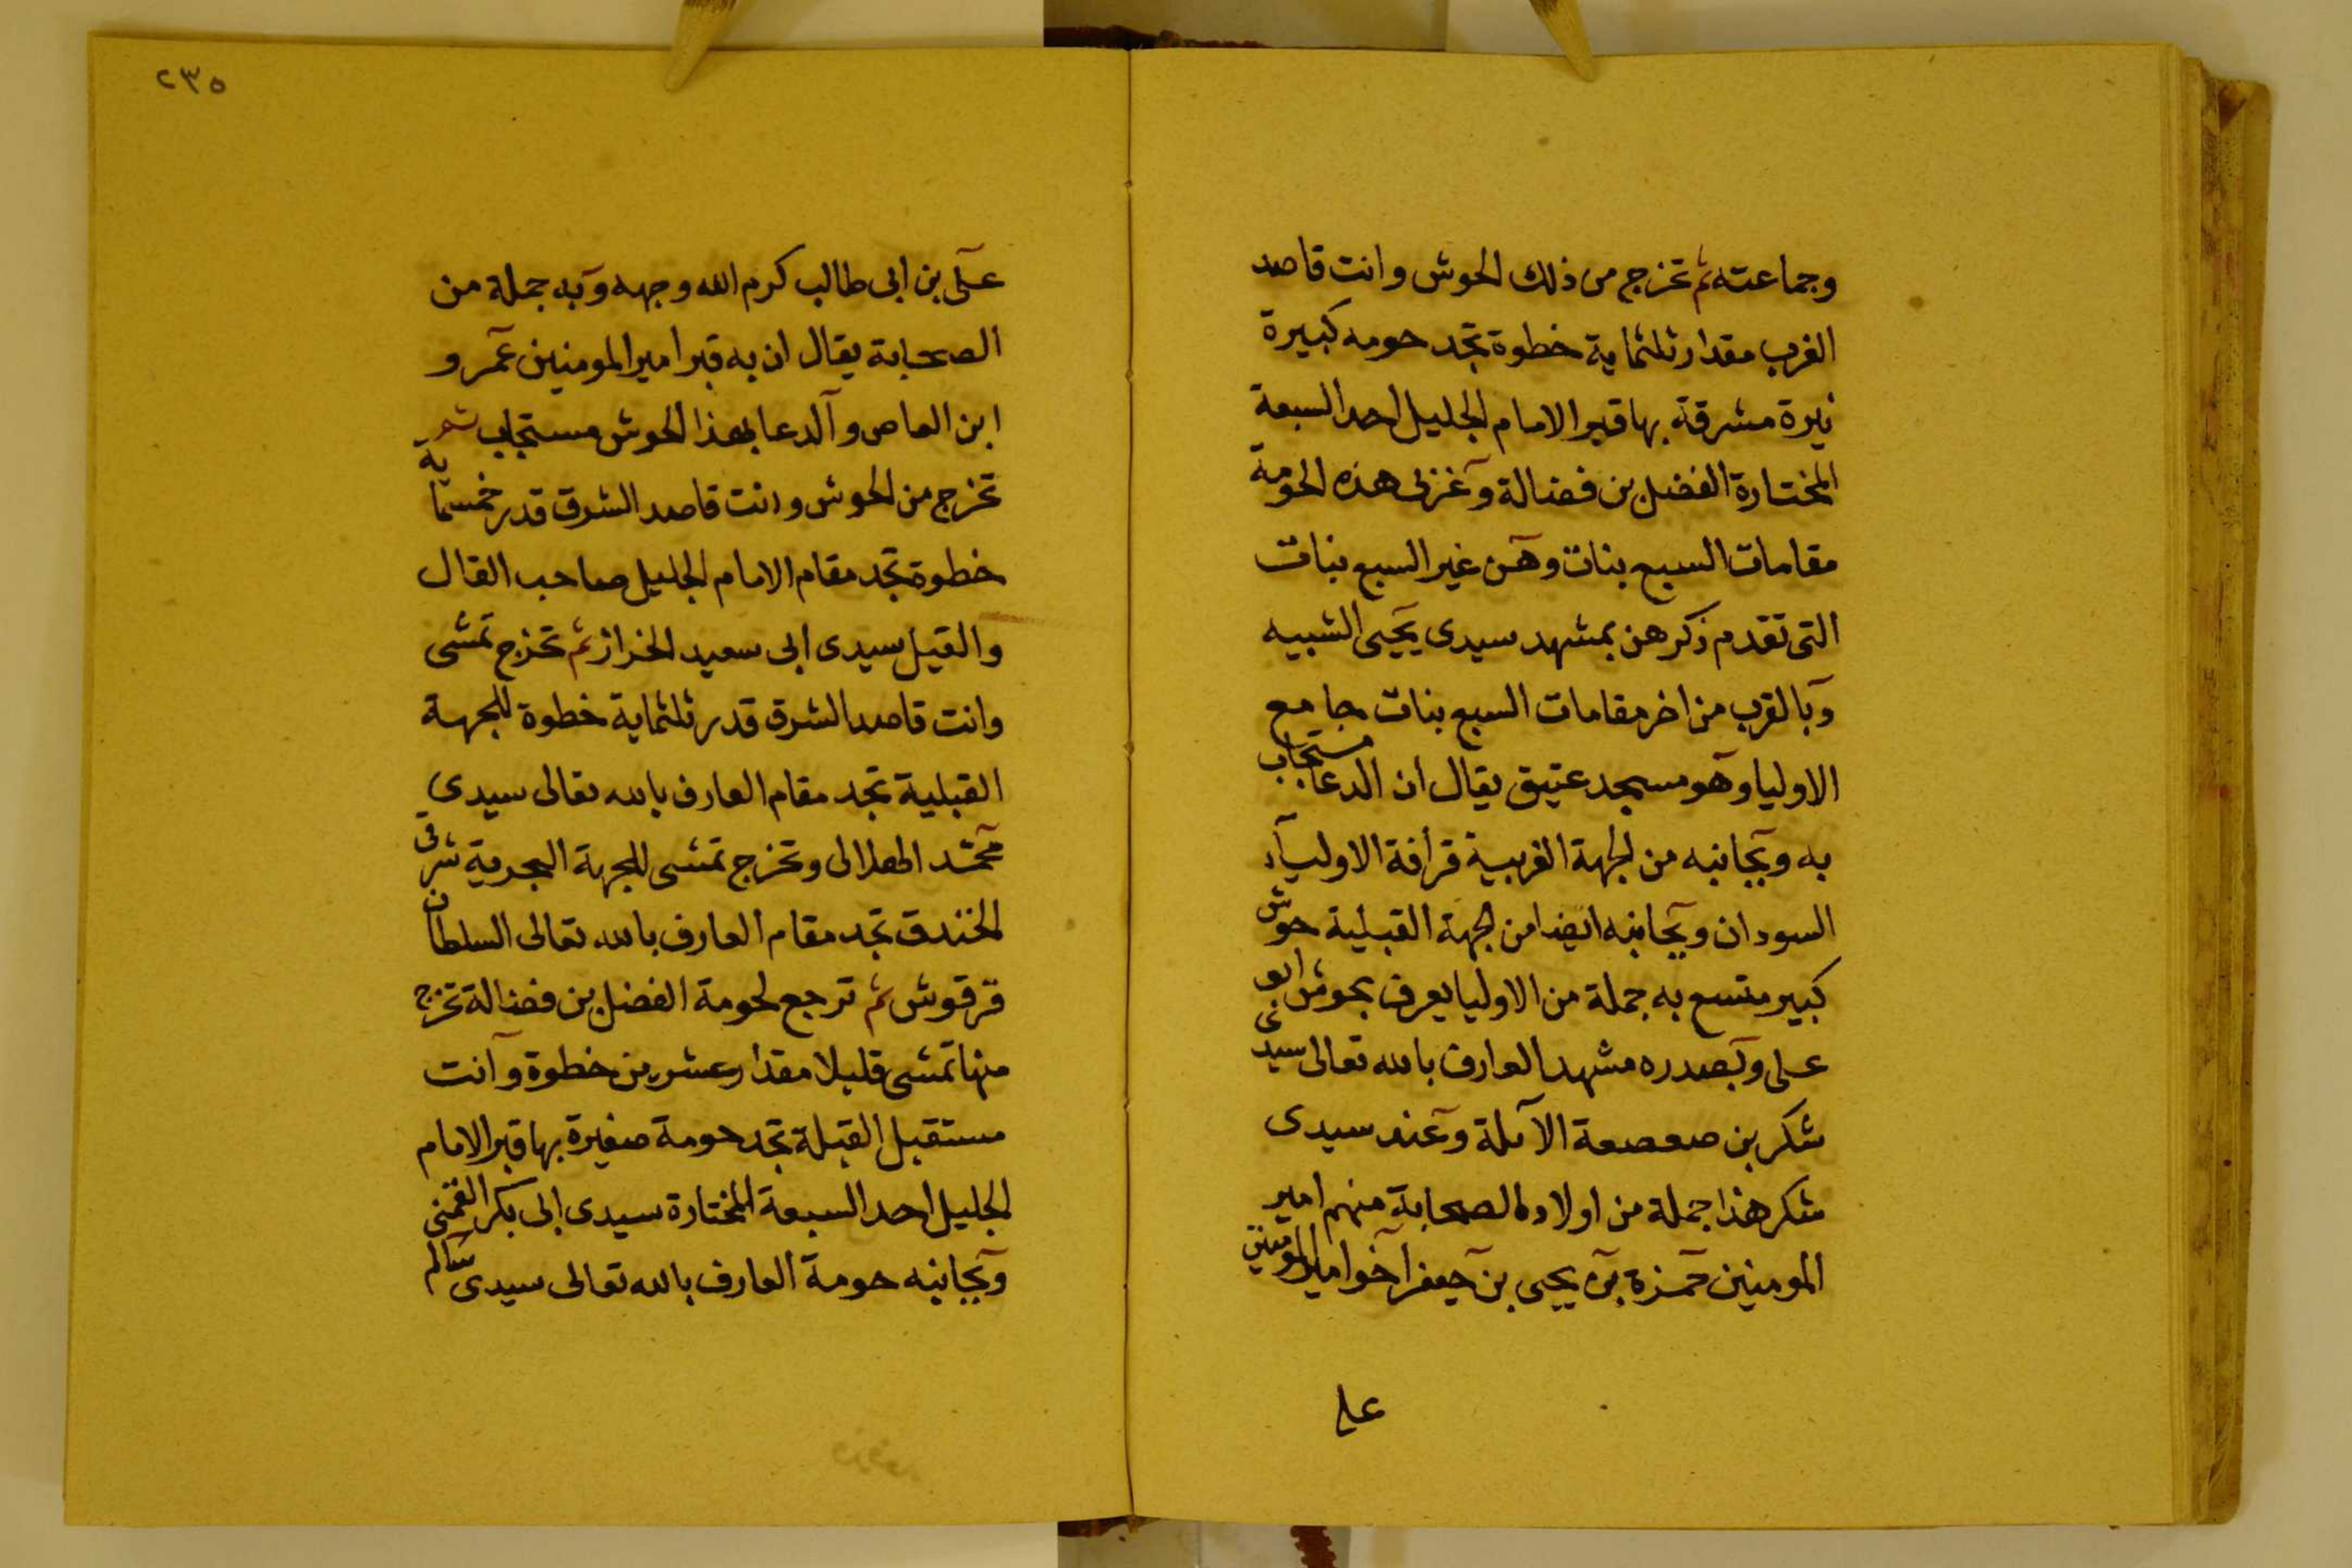 وجماعته ثم تخرج من ذلك الحوش وانت قاصد
الغرب مقدار ثلثماية خطوة تجد حومه كبيرة
نيرة مشرقة بها قبر الامام الجليل احد السبعة
المختارة الفضل بن فضالة وغربى هذه الحومة
مقامات السبع بنات وهن غير السبع بنات
التى تقدم ذكرهن بمشهد سيدى يحيى الشبيه
وبالقرب من اخر مقامات السبع بنات جامع
الاوليا وهو مسجد عتيق يقال ان الدعا مستجاب
به وبجانبه من الجهة الغربية قرافة الاولياء
السودان وبجانبه ايضا من الجهة القبلية حوش
كبير متسع به جملة من الاوليا يعرف بحوش ابو
على وبصدره مشهد العارف بالله تعالى سيدى
شكر بن صعصعة الآملة وعند سيدى
شكر هذا جملة من اولاد الصحابة منهم امير
المومنين حمزة بن يحيى بن جعفر اخو امير المومنين
على
٢٣٥
على بن ابى طالب كرم الله وجهه وبه جملة من
الصحابة يقال ان به قبر امير المومنين عمرو
ابن العاص والدعا بهذا الحوش مستجاب ثم
تخرج من الحوش وانت قاصد الشرق قدر خمسماية
خطوة تجد مقام الامام الجليل صاحب القال
والقيل سيدى ابى سعيد الخراز ثم تخرج تمشى
وانت قاصد الشرق قدر ثلثماية خطوة للجهة
القبلية تجد مقام العارف بالله تعالى سيدي
محمد وتخرج تمشى للجهة البحرية شرقى
الخندق تجد مقام العارف بالله تعالى السلطان
قرقوش ثم ترجع لحومة الفضل بن فضالة تخرج
منها تمشى قليلا مقدار عشرين خطوة وانت
مستقبل القبلة تجد حومة صغيرة بها قبر الامام
الجليل احد السبعة المختارة سيدى ابى بكر القمنى
وبجانبه حومة العارف بالله تعالى سيدى سالم